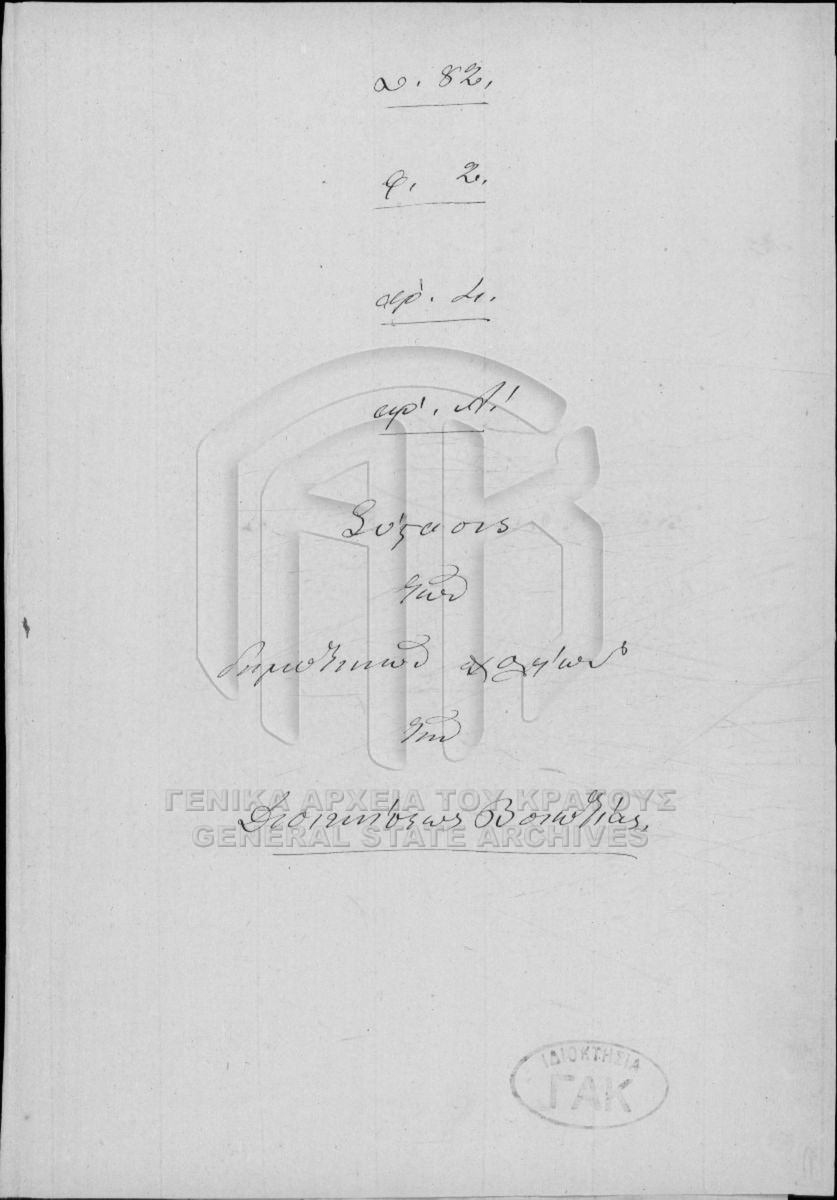 α. 82.
φ. 2.
αρ. 2.
αρ. Α!
Σύστασις
των
δημοτικών σχολείων
της
Διοικήσεως Βοιωτίας.
ΓΕΝΙΚΑ ΑΡΧΕΙΑ ΤΟΥ ΚΡΑΤΟΥΣ
GENERAL STATE ARCHIVES
ΙΔΙΟΚΤΗΣΙΑ
ΓΑΚ